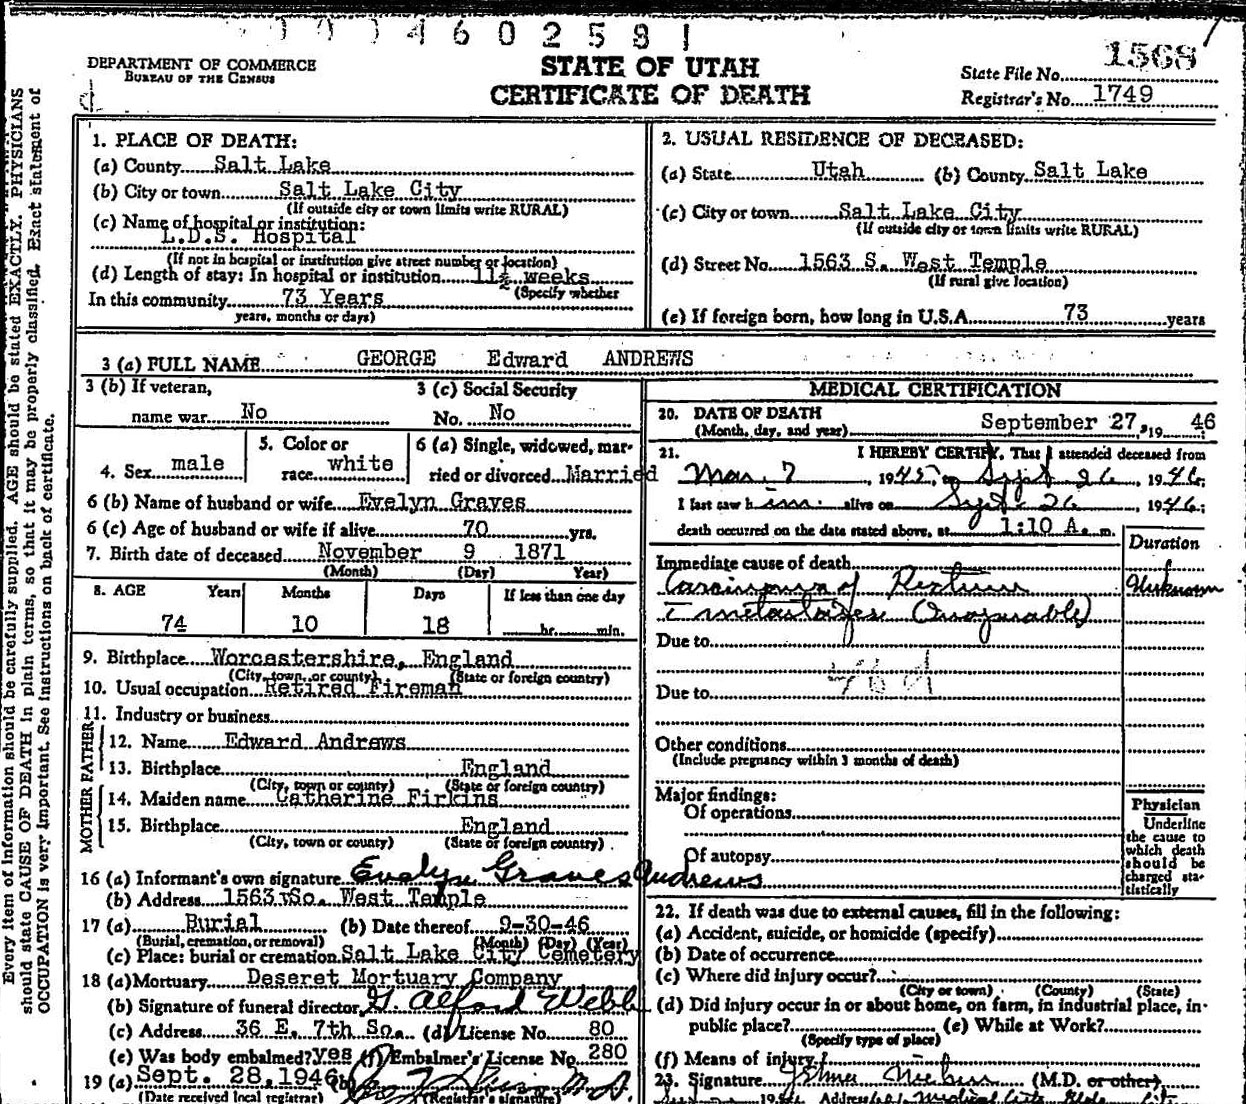 1004602581
DEPARTMENT OF COMMERCE
BUREAU OF THE CENSUS
d
STATE OF UTAH
CERTIFICATE OF DEATH
State File No. 1568
Registrar's No. 1749
Every item of information should be carefully supplied. AGE should be stated EXACTLY. PHYSICIANS
should state CAUSE OF DEATH in plain terms, so that it may be properly classified. Exact statement of
OCCUPATION is very important. See instructions on back of certificate.
1. PLACE OF DEATH:
(a) County Salt Lake
(b) City or town Salt Lake City
(If outside city or town limits write RURAL)
(c) Name of hospital or institution:
L.D.S. Hospital
(If not in hospital or institution give street number or location)
(d) Length of stay: In hospital or institution 11½ weeks
(Specify whether
In this community 73 Years
years, months or days)
2. USUAL RESIDENCE OF DECEASED:
(a) State Utah (b) County Salt Lake
(c) City or town Salt Lake City
(If outside city or town limits write RURAL)
(d) Street No. 1563 S. West Temple
(If rural give location)
(e) If foreign born, how long in U.S.A. 73 years
3 (a) FULL NAME GEORGE Edward ANDREWS
3 (b) If veteran,
name war No
3 (c) Social Security
No. No
4. Sex male
5. Color or
race white
6 (a) Single, widowed, mar-
ried or divorced Married
6 (b) Name of husband or wife Evelyn Graves
6 (c) Age of husband or wife if alive 70 yrs.
7. Birth date of deceased November 9 1871
(Month) (Day) Year)
8. AGE Years Months Days If less than one day
74 10 18 hr. min.
9. Birthplace Worcastershire, England
(City, town, or county) (State or foreign country)
10. Usual occupation Retired Fireman
11. Industry or business
FATHER
12. Name Edward Andrews
13. Birthplace England
(City, town or county) (State or foreign country)
MOTHER
14. Maiden name Catherine Firkins
15. Birthplace England
(City, town or county) (State or foreign country)
16 (a) Informant's own signature Evelyn Graves Andrews
(b) Address 1563 So. West Temple
17 (a) Burial (b) Date thereof 9-30-46
(Burial, cremation, or removal) (Month) (Day) (Year)
(c) Place: burial or cremation Salt Lake City Cemetery
18 (a) Mortuary Deseret Mortuary Company
(b) Signature of funeral director G. Alford Webb
(c) Address 36 E. 7th So. (d) License No. 80
(e) Was body embalmed? yes (f) Embalmer's License No. 280
19 (a) Sept. 28, 1946 (b) M.D.
(Date received local registrar) (Registrar's signature)
MEDICAL CERTIFICATION
20. DATE OF DEATH
(Month, day, and year) September 27, 19 46
21. I HEREBY CERTIFY, That I attended deceased from
Mar. 7, 1945, to Sept 26, 1946;
I last saw him alive on Sept 26, 1946;
death occurred on the date stated above, at 1:10 A. m.
Duration
Immediate cause of death
Carcinoma of Rectum Unknown
metastases (Inoperable)
Due to
Due to
Other conditions
(Include pregnancy within 3 months of death)
Major findings:
Of operations
Of autopsy
Physician
Underline
the cause to
which death
should be
charged sta-
tistically
22. If death was due to external causes, fill in the following:
(a) Accident, suicide, or homicide (specify)
(b) Date of occurrence
(c) Where did injury occur?
(City or town) (County) (State)
(d) Did injury occur in or about home, on farm, in industrial place, in
public place? (e) While at Work?
(Specify type of place)
(f) Means of injury
23. Signature (M.D. or other)
Address Medical Arts Bldg. City